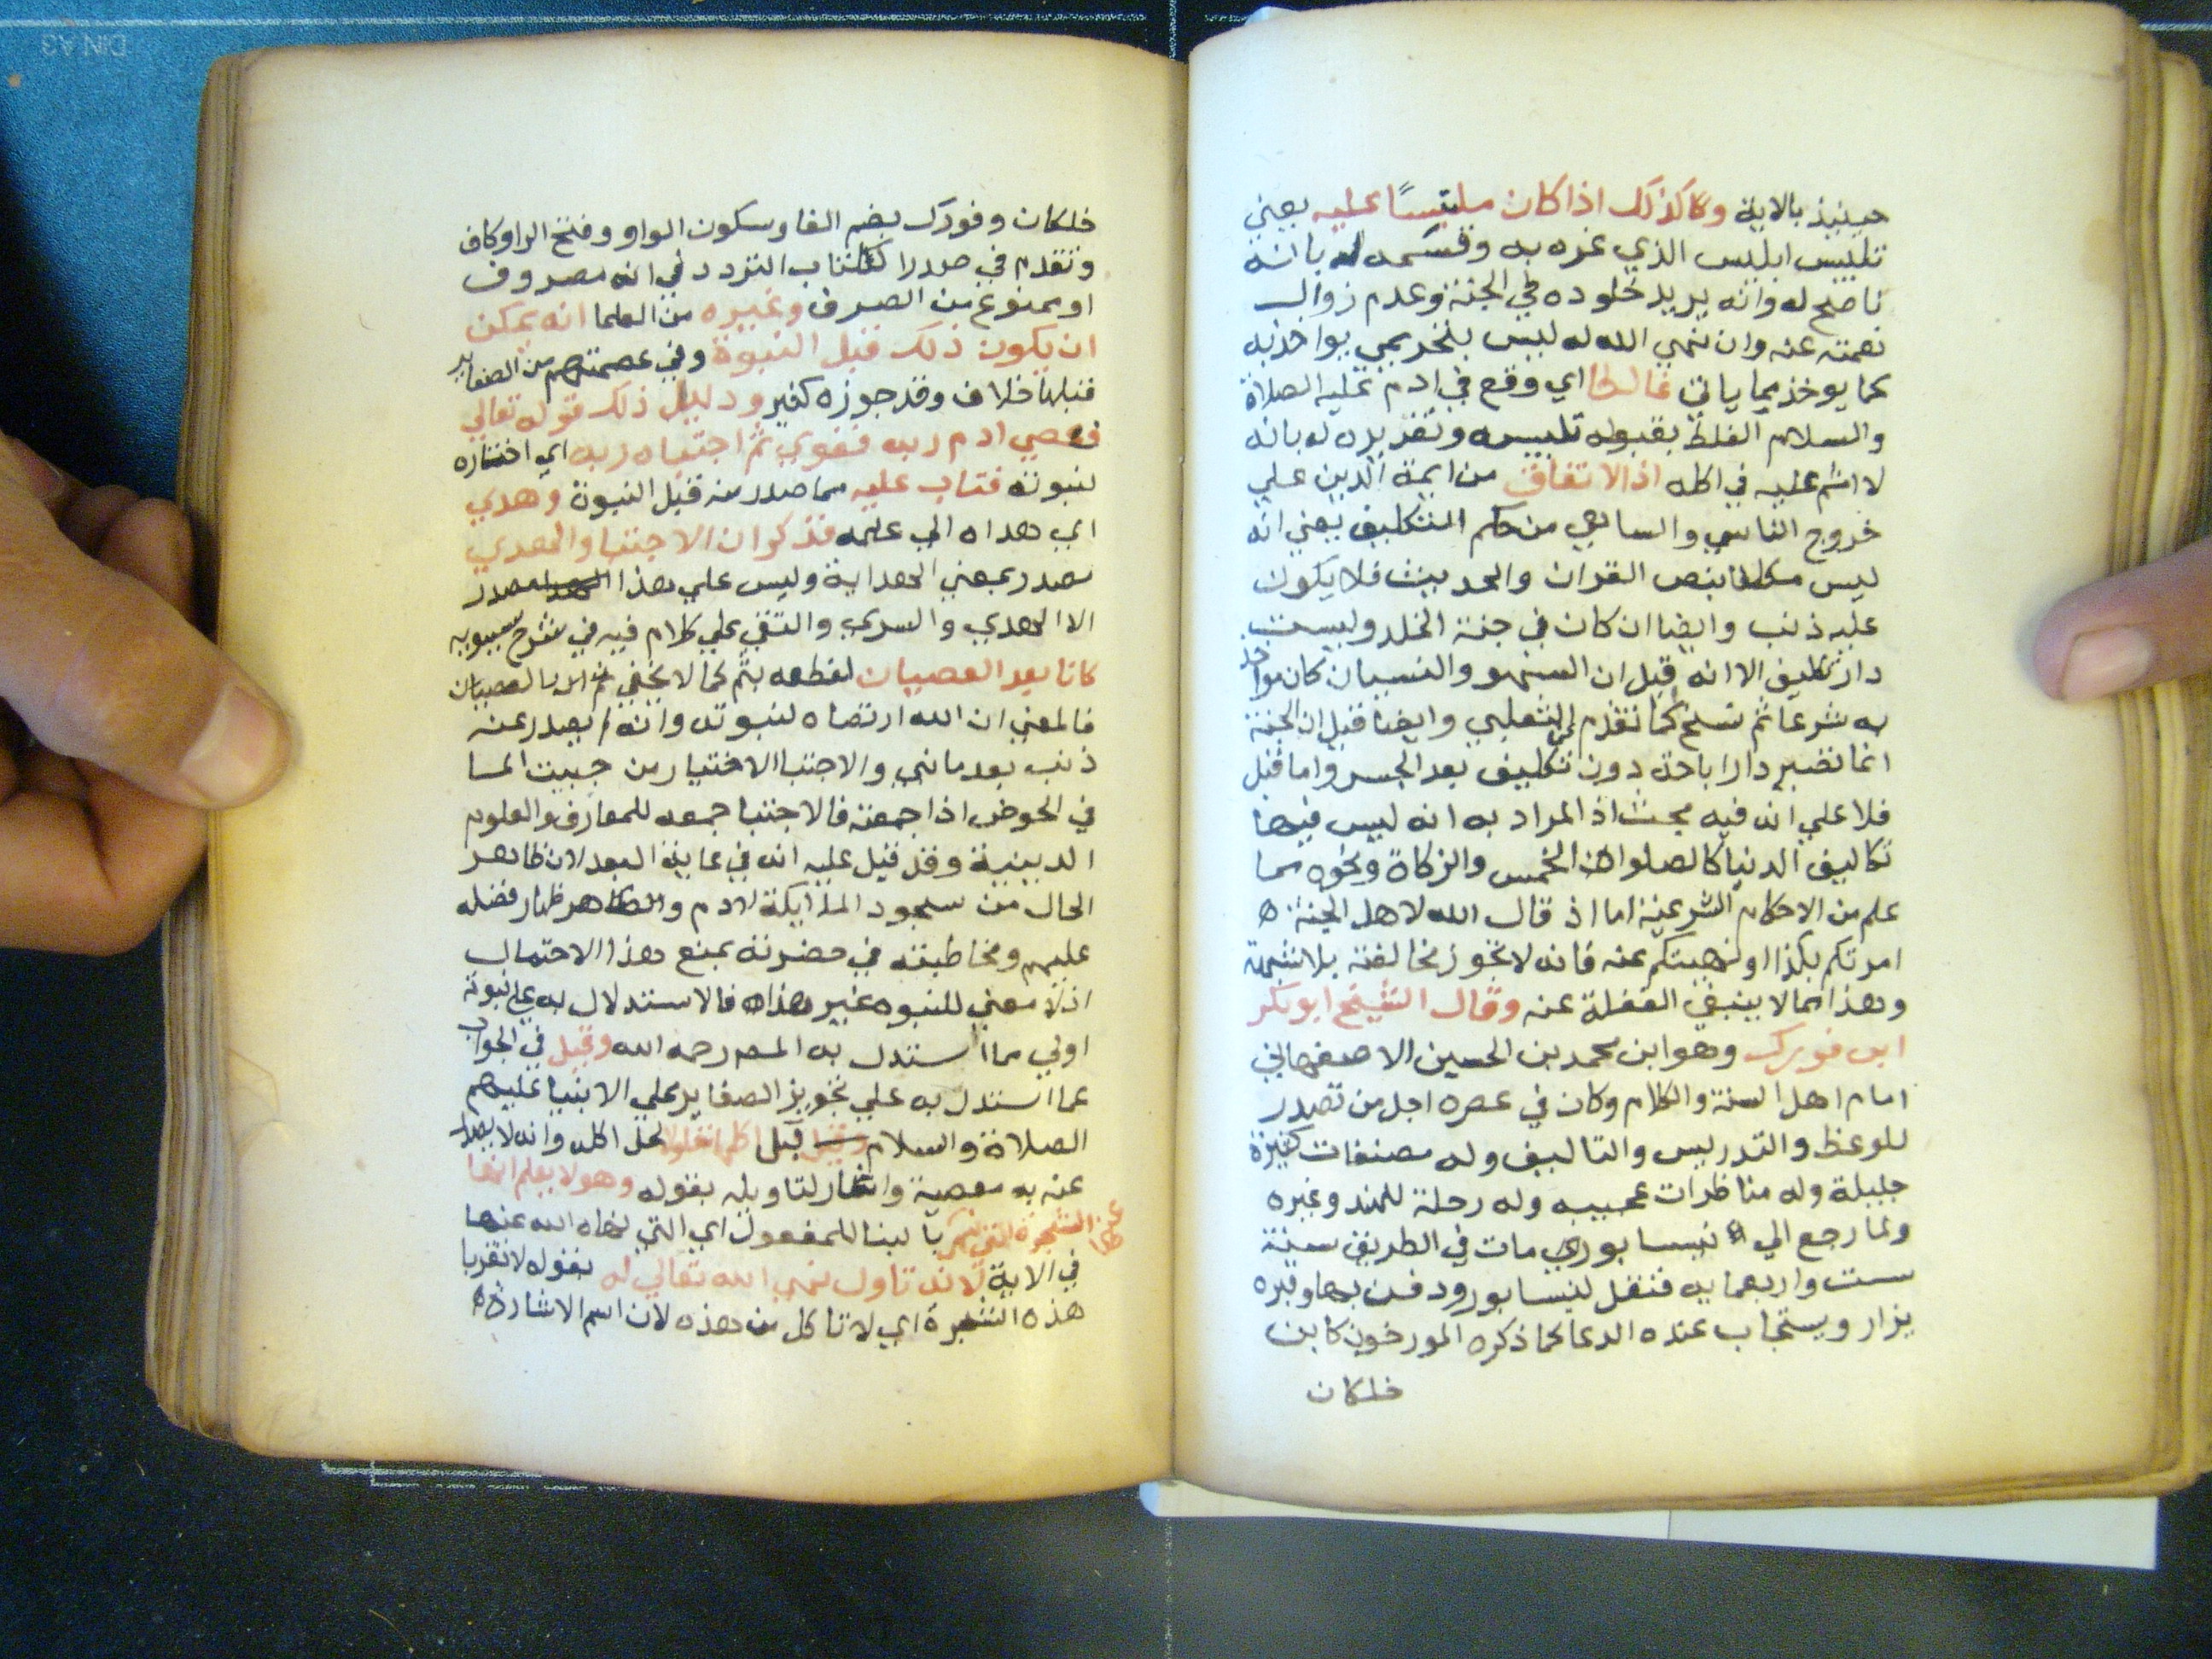 حينيذ بالاية وكذلك اذا كان ملبسًا عليه يعني
تلبيس ابليس الذي غره به وقسمه له بانه
ناصح له وانه يريد خلوده في الجنة وعدم زوال
نعمته عنه وان نهي الله له ليس بتحريمي يواخذ به
كما يوخذ مما ياتي غالطا اي وقع في ادم عليه الصلاة
والسلام الغلط بقبوله تلبيسه وتغريره له بانه
لا اثم عليه في اكله اذ الاتفاق من ايمة الدين علي
خروج الناسي والساهي من حكم التكليف يعني انه
ليس مكلفا بنص القران والحديث فلا يكون
عليه ذنب وايضا ان كان في جنة الخلد وليست
دار تكليف الا انه قيل ان السهو والنسيان كان مواخذ
به شرعا ثم نسخ كما تقدم عن الثعلبي وايضا قيل ان الجنة
انما تصير دار اباحة دون تكليف بعد الحسر واما قبل
فلا علي انه فيه بحث اذ المراد به انه ليس فيها
تكاليف الدنيا كالصلوات الخمس والزكاة ونحوه مما
علم من الاحكام الشرعية اما اذ قال الله لاهل الجنة
امرتكم بكذا او نهيتكم عنه فانه لا تجوز مخالفته بلا شبهة
وهذا مما لا ينبغي الغفلة عنه وقال الشيخ ابو بكر
ابن فورك وهو ابن محمد بن الحسين الاصفهاني
امام اهل السنة والكلام وكان في عصره اجل من تصدر
للوعظ والتدريس والتاليف وله مصنفات كثيرة
جليلة وله مناظرات عجيبه وله رحلة للهند وغيره
ولما رجع الي نيسابوري مات في الطريق سنة
ست واربعمايه فنقل لنيسابور ودفن بها وقبره
يزار ويستجاب عنده الدعا كما ذكره المورخون كابن
خلكان
خلكان وفورك بضم الفا وسكون الواو وفتح الرا وكاف
وتقدم في صدر الكتاب التردد في انه مصروف
او ممنوع من الصرف وغيره من العلما انه يمكن
ان يكون ذلك قبل النبوة وفي عصمتهم من الصغاير
قبلها خلاف وقد جوزه كثير ودليل ذلك قوله تعالي
فعصي ادم ربه فغوي ثم اجتباه ربه اي اختاره
لنبوته فتاب عليه مما صدر منه قبل النبوة وهدي
اي هداه الي علمه فذكر ان الاجتبا والهدي
مصدر بمعني الهداية وليس علي هذا مصدر
الا الهدي والسري والتقي علي كلام فيه في شرح سيبويه
كانا بعد العصيان لعطفه بثم كما لا يخفي بالعصيان
فالمعني ان الله ارتضاه لنبوته وانه لم يصدر عنه
ذنب بعد ما نبي والاجتبا الاختيار من جبيت الما
في الحوض اذا جمعته فالاجتبا جمعه للمعارف والعلوم
الدينية وقد قيل عليه انه في غاية البعد لان ظاهر
الحال من سجود الملايكة لادم والظاهر ظهار فضله
عليهم ومخاطبته في حضرته يمنع هذا الاحتمال
اذ لا معني للنبوه غير هذا فالاستدلال به علي نبوته
اولي مما استدل به المص رحمه الله وقيل في الجواب
عما استدل به علي تجويز الصغاير علي الانبيا عليهم
الصلاة والسلام قبل اكلها متاولا لحل اكله وانه لا يصدر
عنه به معصية واشار لتاويله بقوله وهو لا يعلم انها
الشجرة التي نهي عنها بالبنا للمفعول اي التي نهاه الله عنها
في الاية لانه تاول نهي الله تعالي له بقوله لا تقربا
هذه الشجرة اي لا تاكل من هذه لان اسم الاشارة